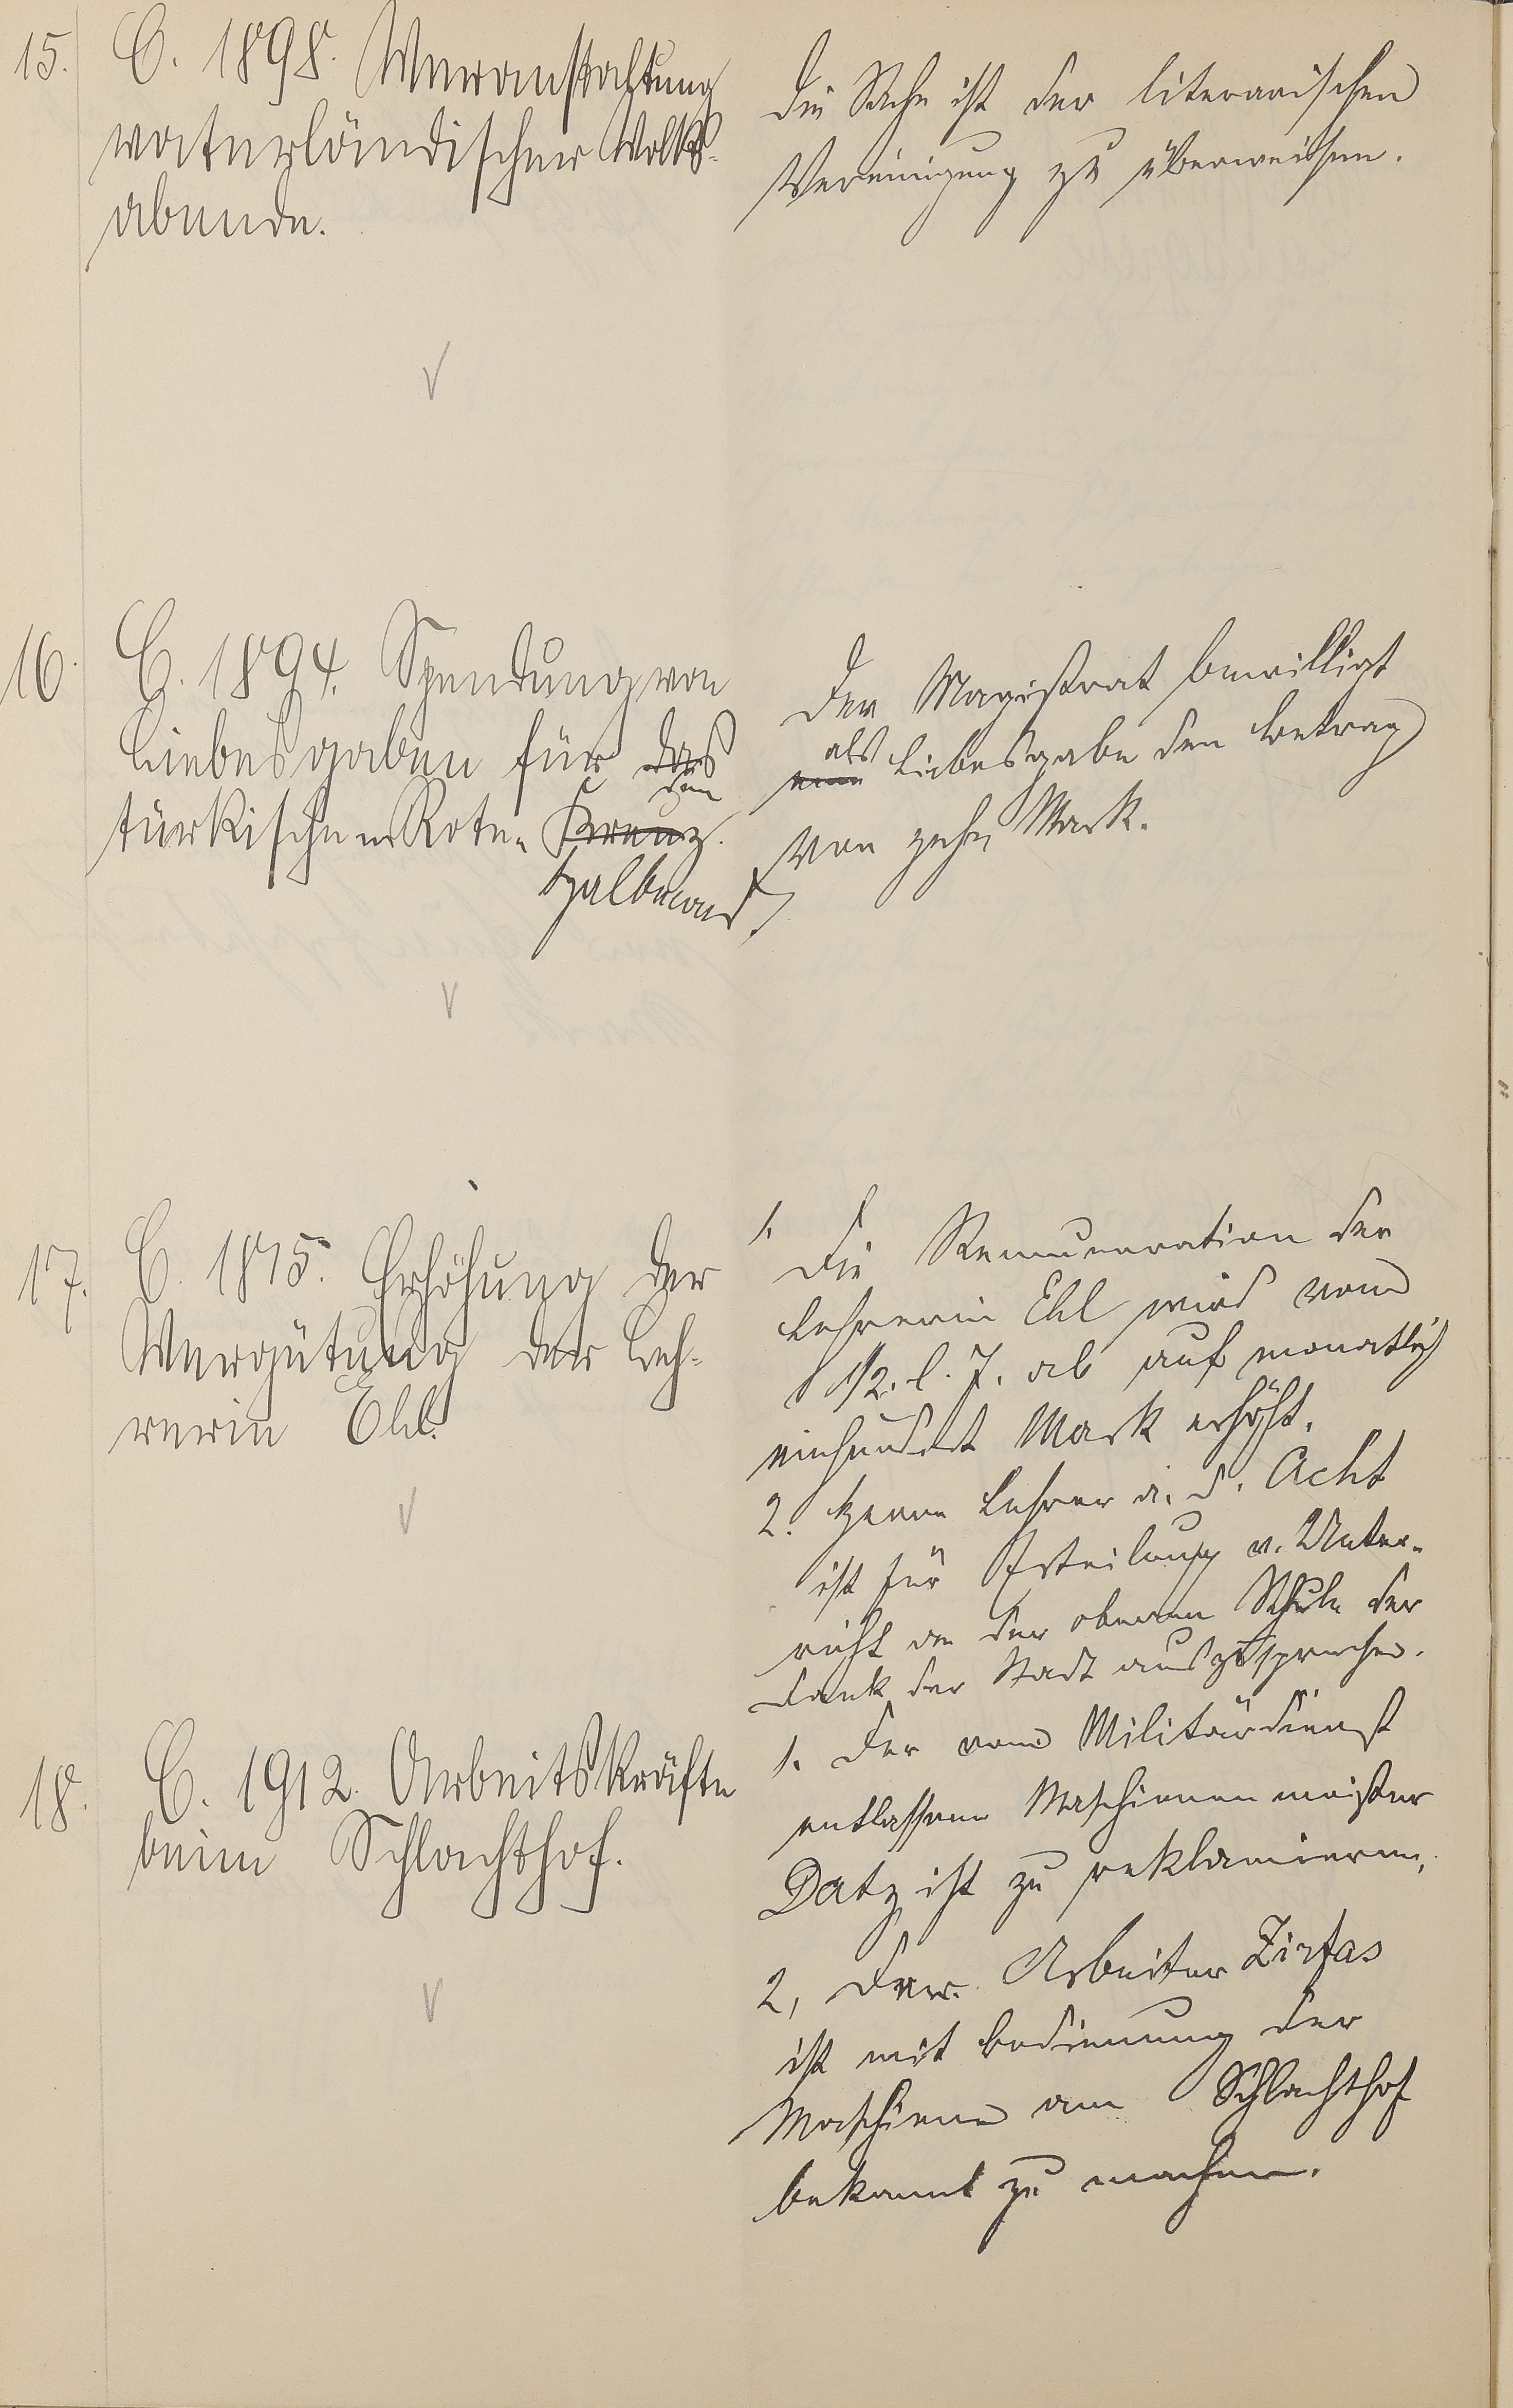 15. C. 1898. Veranstaltung
vaterländischer Volks-
abende.
Die Sache ist der literarischen
Vereinigung zu überweisen.
16. C. 1894. Spendung von
Liebesgaben für das
den
türkischen Roten Kreuz.
Halbmond.
Der Magistrat bewilligt
als
eine Liebesgabe den Betrag
von zehn Mark.
17. C. 1875. Erhöhung der
Vergütung der Leh-
rerin Ehl.
1. Die Remuneration der
Lehrerin Ehl wird vom
1/2. l. J. ab auf monatlich
einhundert Mark erhöht.
2. Herrn Lehrer a. D. Acht
ist für Erteilung v. Unter-
richt an der oberen Schule der
Dank der Stadt auszusprechen.
18. C. 1912. Arbeitskräfte
beim Schlachthof.
1. Der vom Militärdienst
entlassene Maschinenmeister
Datz ist zu reklamieren,
2, Der Arbeiter Zirfas
ist mit Bedienung der
Maschinen am Schlachthof
bekannt zu machen.